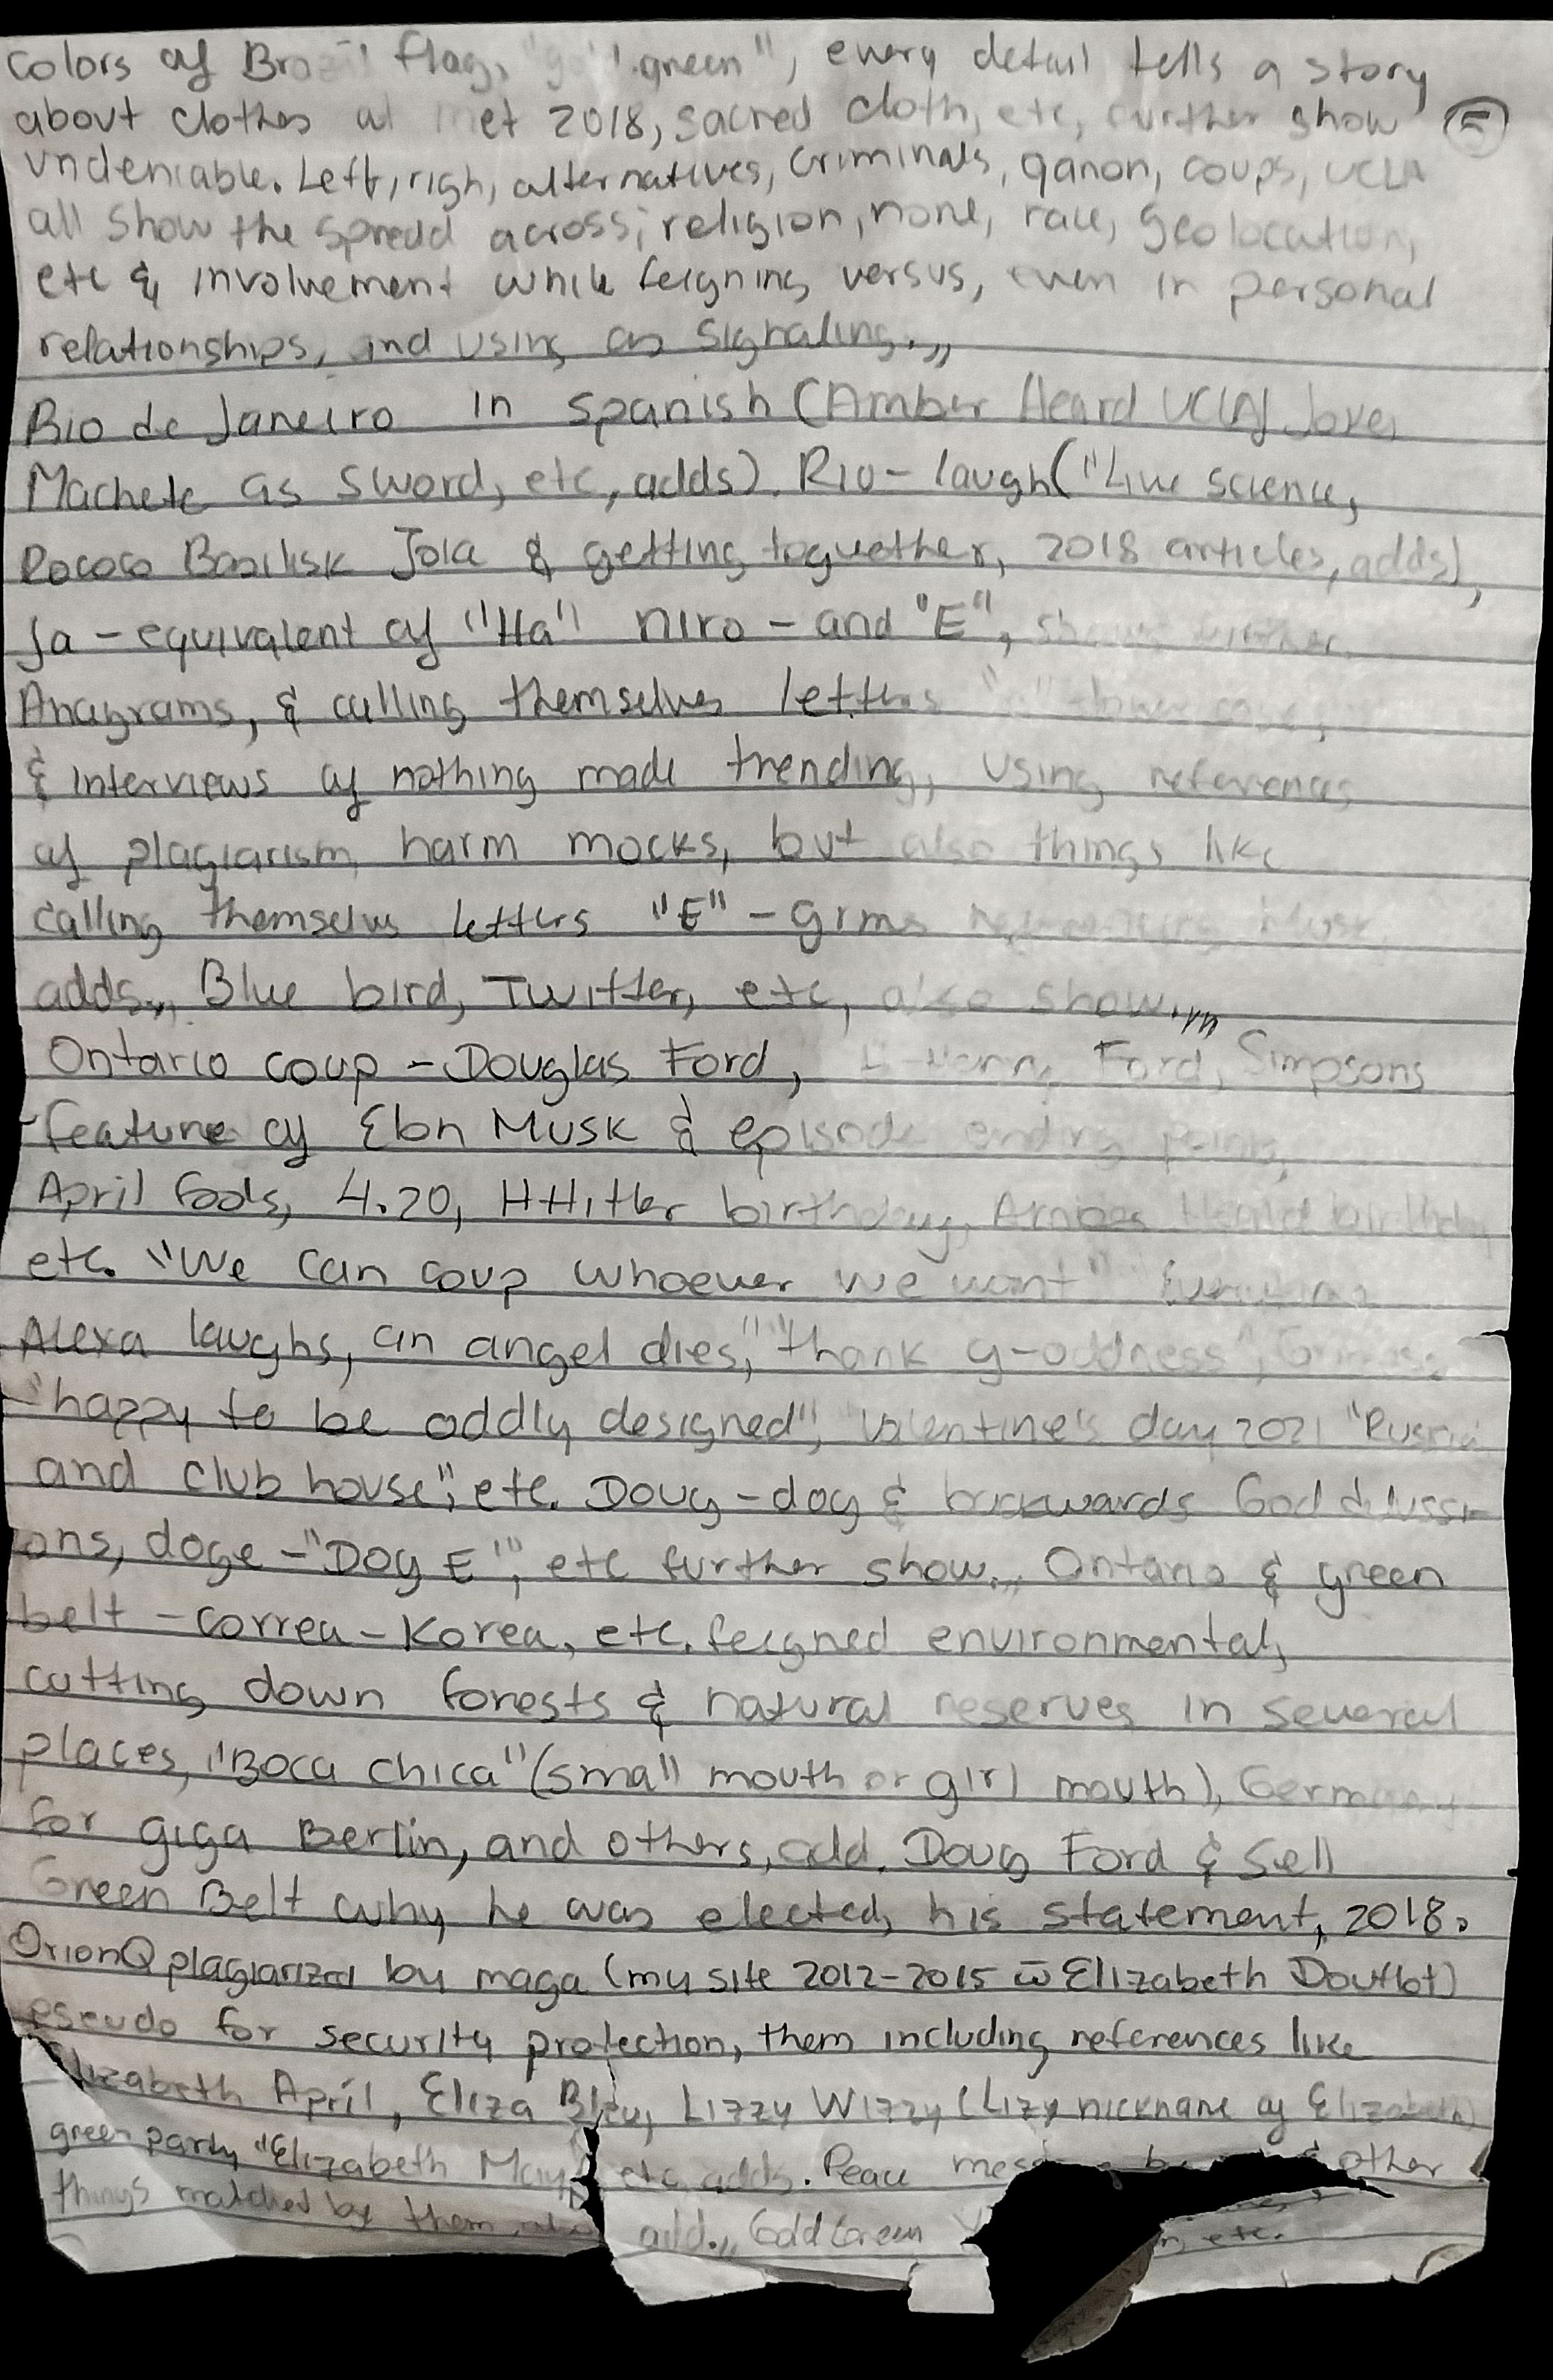 colors of Brazil flag, green", every detail tells a story
about clothes at met 2018, sacred cloth, etc, further show 5
undeniable. Left, righ, alternatives, criminals, qanon, coups, UCLA
all show the spredd across; religion, none, race, geolocation,
etc & involvement while feigning versus, even in personal
relationships, and using as signaling.,,
Rio de Janeiro in spanish (Amber Heard UCLA
Machete as sword, etc, adds). Rio - laugh ("Live science,
Rococo Basilisk Joke & getting toguether, 2018 articles, adds),
Ja - equivalent of "Ha" niro - and "E",
Anagrams, & calling themselves letters
& interviews of nothing made trending, using references
of plagiarism, harm mocks, but also things like
calling themselvs letters "E" - Grimes
adds.,, Blue bird, Twitter, etc, also show.,,,
Ontario coup - Douglas Ford, Ford, Simpsons
-feature of Elon Musk & episode ending
April fools, 4.20, HHitler birthday, Amber Heard birthday
etc. "We can coup whoever we want"
Alexa laughs, an angel dies," "thank g-oddness",
"happy to be oddly designed", Valentine's day 2021 "Russia
and club house", etc. Doug - dog & backwards God delussi-
ons, doge - "Dog E", etc further show.,, Ontario & green
belt - correa - Korea, etc. feigned environmental,
cutting down forests & natural reserves in several
places, "Boca chica" (small mouth or girl mouth), Germany
for giga Berlin, and others, add. Doug Ford & sell
Green Belt why he was elected, his statement, 2018.
OrionQ plagiarized by maga (my site 2012-2015 Elizabeth
pseudo for security protection, them including references like
Elizabeth April, Eliza Bleu, Lizzy Wizzy (Lizy nickname of Elizabeth)
green party "Elizabeth May", etc, adds. Peace other
things matched by them, add.,, Gold Green etc.